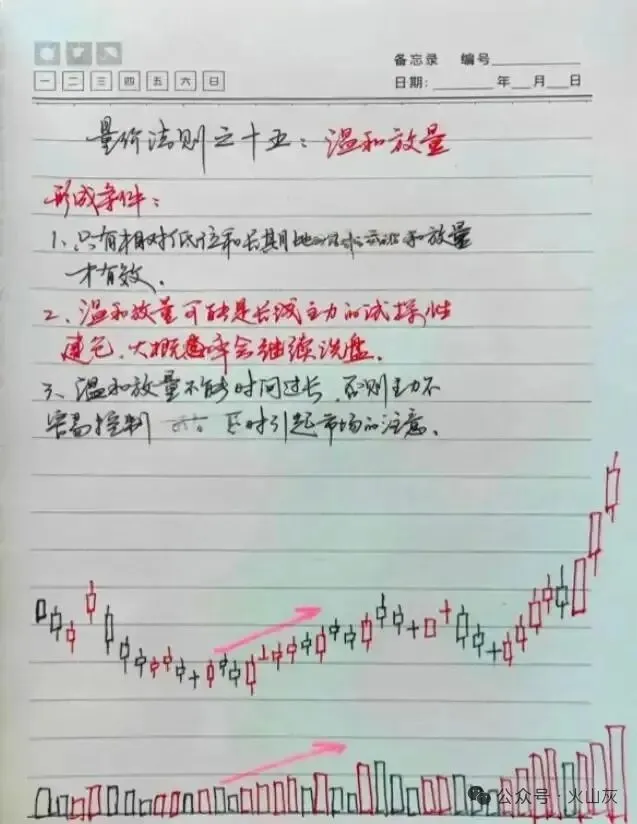 备忘录 编号
一 二 三 四 五 六 日
日期: 年 月 日
量价法则之十五:温和放量
形成条件:
1、只有相对低位和长期地 和放量
才有效.
2、温和放量可能是长线主力的试探性
建仓.大概 率会继续洗盘.
3、温和放量不能时间过长.否则主力不
容易控制 同时引起市场的注意.
公众号·火山灰